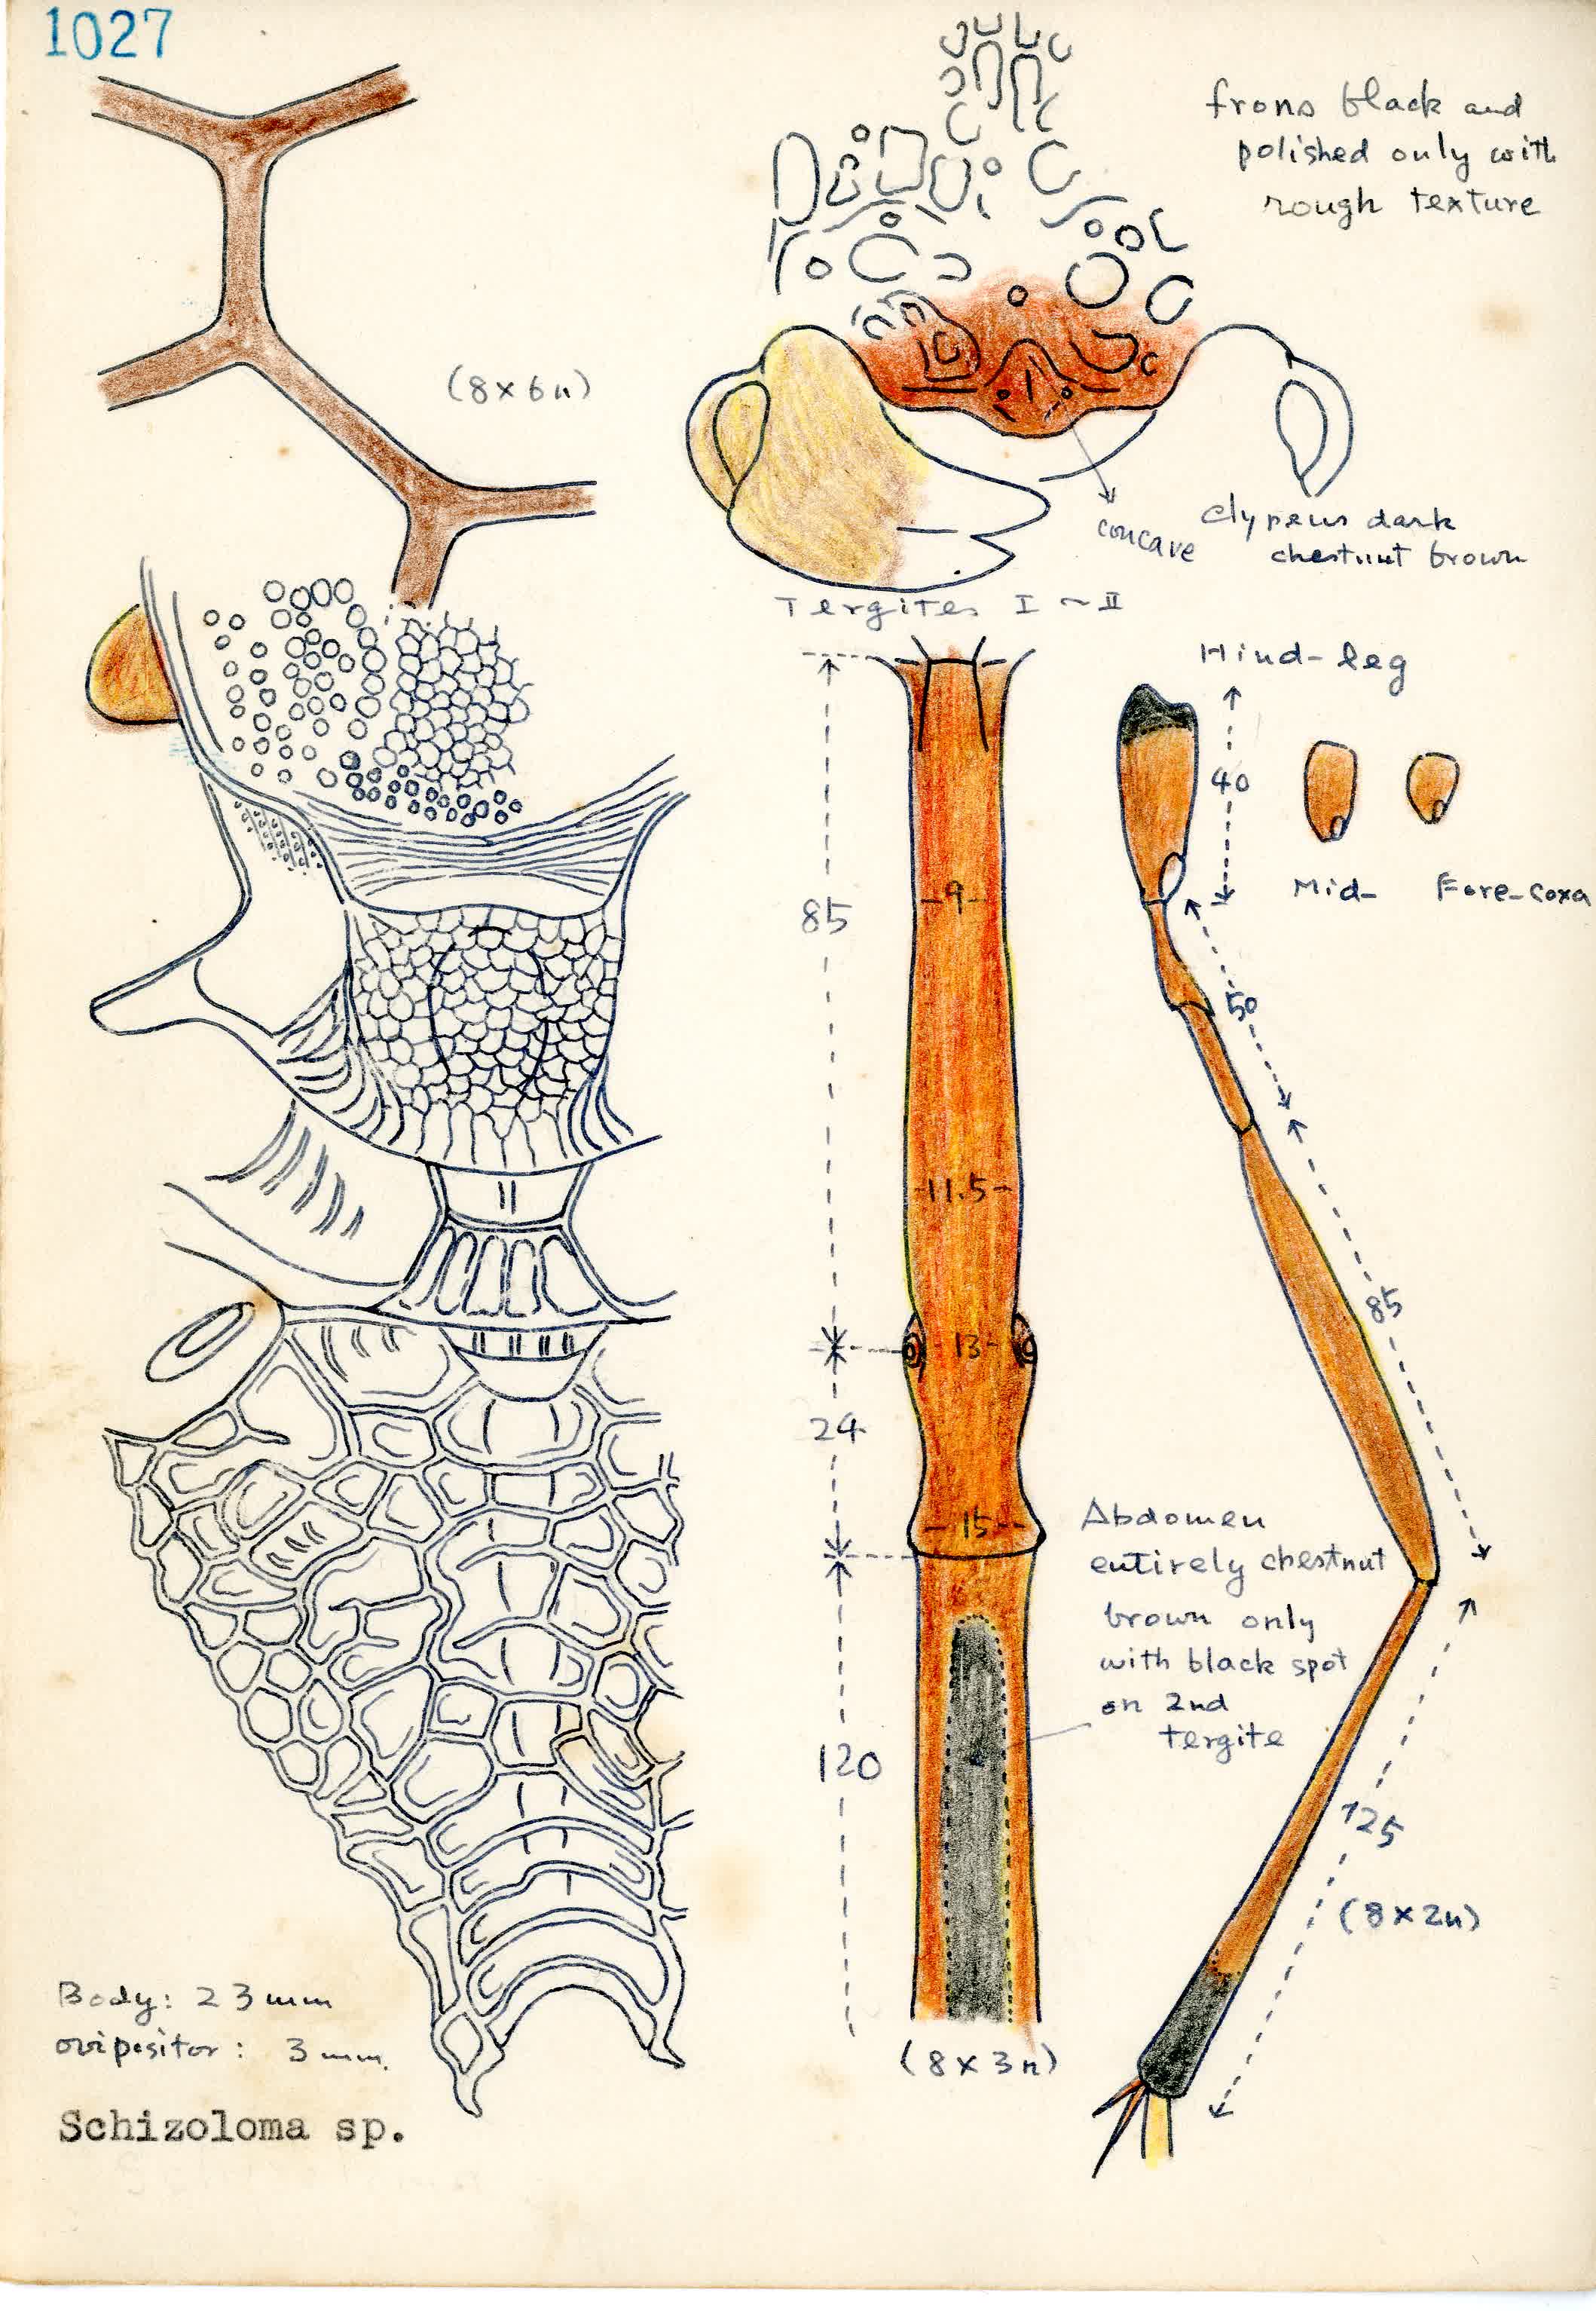 1027
frons black and
polished only with
rough texture
(8×6n)
concave
Clypeus dark
chestnut brown
Tergites I ~ II
Hind-leg
40
Mid-
Fore-coxa
85
-9-
50
-11.5-
85
-13-
24
-15-
Abdomen
entirely chestnut
brown only
with black spot
on 2nd
tergite
120
125
(8×2n)
(8×3n)
Body: 23mm
ovipositor: 3mm.
Schizoloma sp.